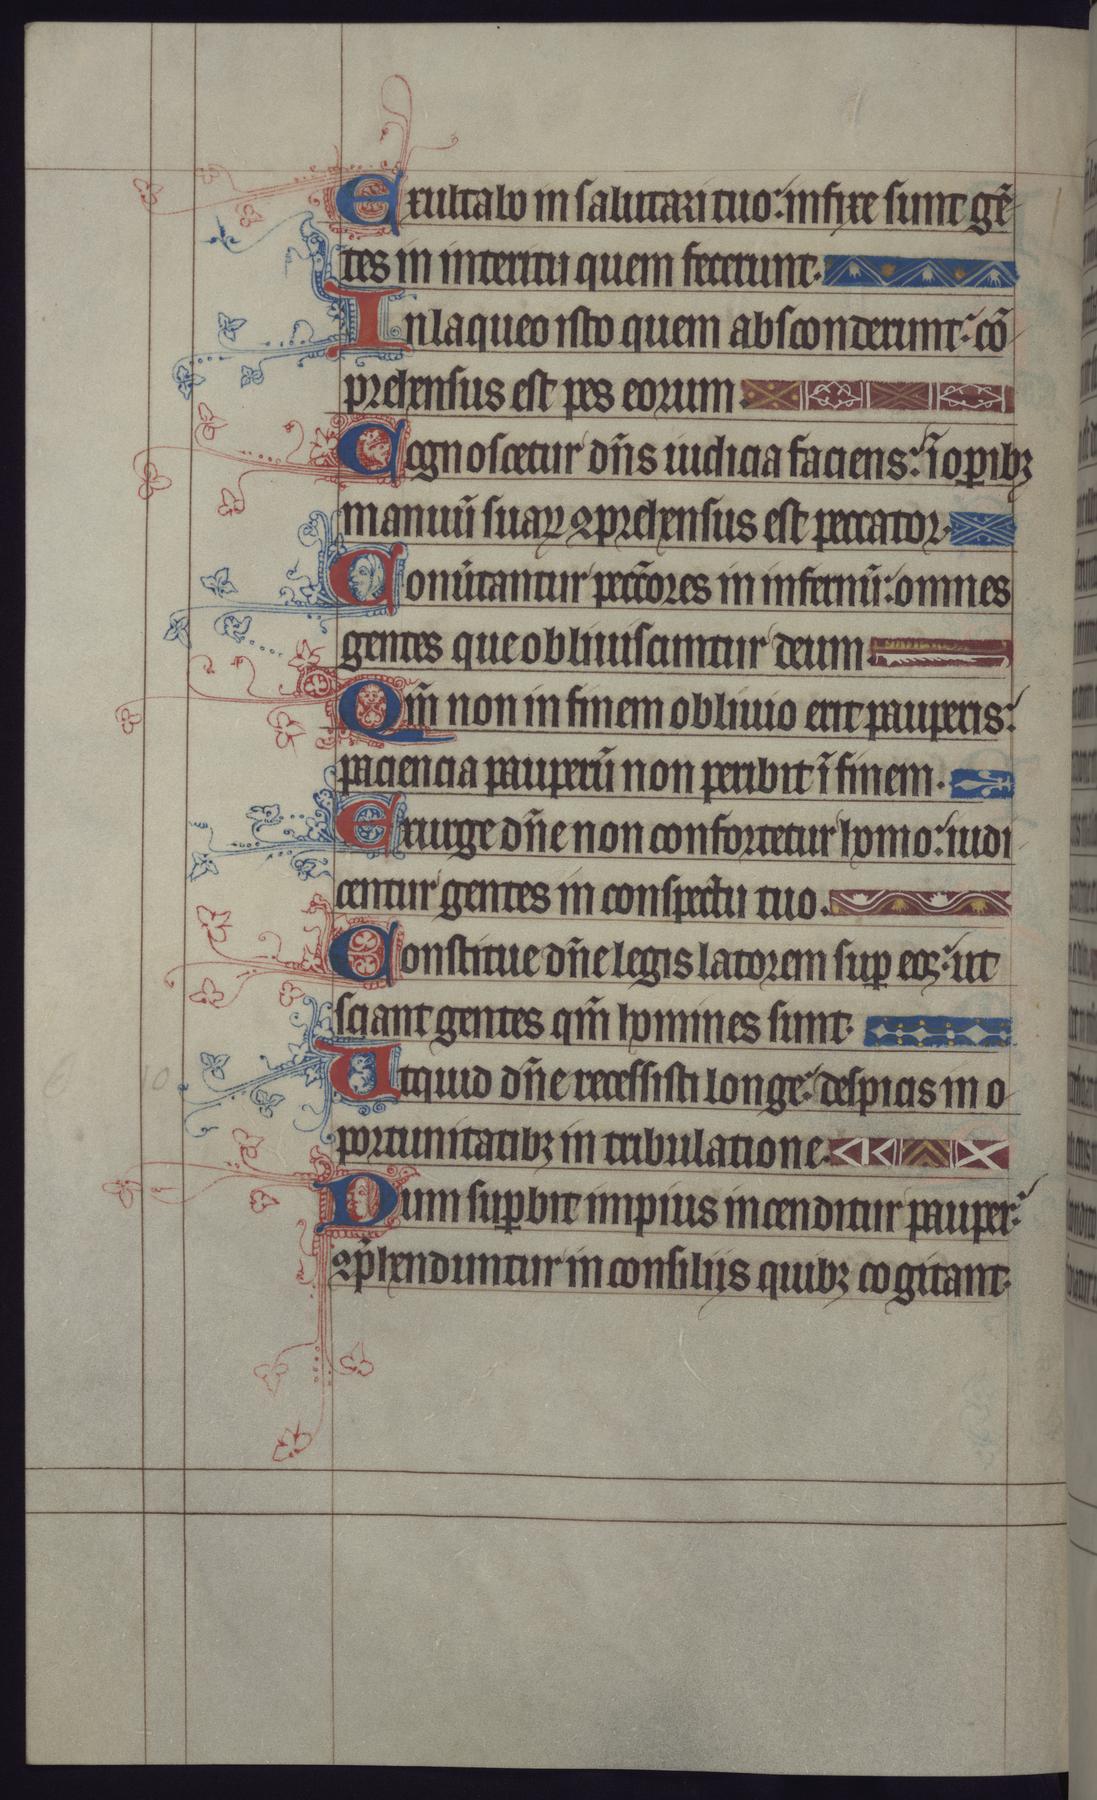 Exultabo in salutari tuo: infixe sunt gē
tes in interitu quem fecerunt.
In laqueo isto quem absconderunt: cō
prehensus est pes eorum.
Cognoscetur dn̄s iudicia faciens: ī oꝑibꝫ
manuū suaꝝ ꝯprehensus est peccator.
Conūtantur pecc̄ores in infernū: omnes
gentes que obliuiscuntur deum.
Qm̄ non in finem obliuio erit pauperis:
paciencia pauperū non peribit ī finem.
Exurge dn̄e non confortetur homo: iudi
centur gentes in conspectu tuo.
Constitue dn̄e legis latorem suꝑ eos: ut
sciant gentes qm̄ homines sunt.
Utquid dn̄e recessisti longe: despicis in o
portunitatibꝫ in tribulatione.
Dum suꝑbit impius incenditur pauper:
ꝯp̄henduntur in consiliis quibꝫ cogitant.